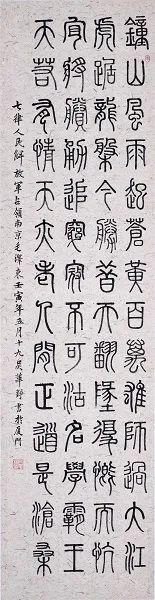 鐘山風雨起蒼黃百萬雄師過大江
虎踞龍槃今勝昔天翻墬覆慨而忼
宜將賸勈追窮寇不可沽名學霸王
天若有情天亦老人間正道是滄桑
七律人民解放軍占領南京毛澤東壬寅年五月十九吳書於廈門